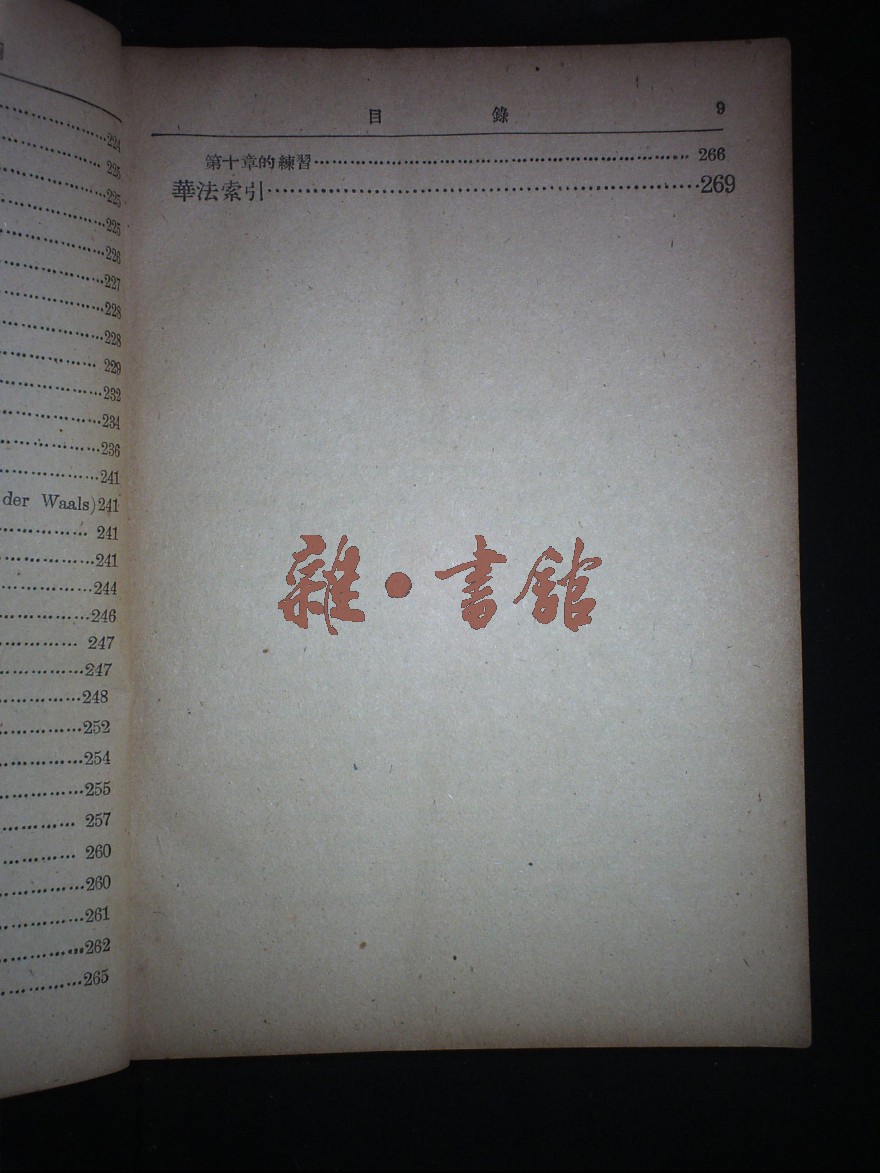 224
225
225
225
226
227
228
228
229
232
234
236
241
der Waals)241
241
241
244
246
247
247
248
252
254
255
257
260
260
261
262
265
目 錄 9
第十章的練習 266
華法索引 269
雜・書館